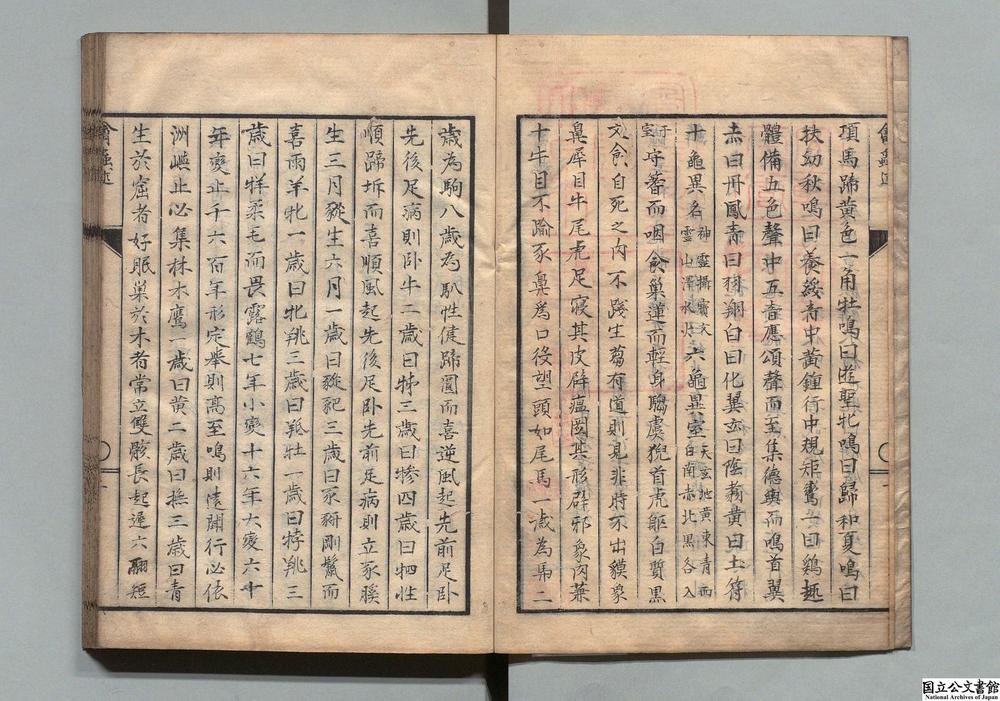 項馬蹄黃色一角牡鳴曰遊聖牝鳴曰歸和夏鳴曰
扶幼秋鳴曰養綏音中黃鍾行中規矩鸞一曰鷄趣
體備五色聲中五音應頌聲而至集德輿而鳴首翼
赤曰丹鳳青曰翔白曰化翼玄曰陰翥黃曰土符
十龜異名神靈攝寶文
靈山澤水火六龜異室天玄地黃東青西
白南赤北黑各入
于守蓍而咽食巢蓮而輕身騶虞猊首虎軀白質黑
室
文食自死之肉不踐生芻有道則見非時不出貘象
鼻犀目牛尾虎足寢其皮辟瘟圖其形辟邪象肉兼
十牛目不踰豕鼻為口役望頭如尾馬一歲為馬二
歲為駒八歲為馬八性健蹄圓而喜逆風起先前足卧
先後足病則卧牛二歲曰㹑三歲曰犙四歲曰牭性
順蹄坼而喜順風起先後足卧先前足病則立豕
生三月豵生六月一歲曰豵豝三歲曰豕豣剛鬣而
喜雨羊牝一歲曰牝三歲曰羖牡一歲曰牸三
歲曰牂柔毛而畏露鶴七年小變十六年大變六十
年變止千六百年形定舉則高至鳴則遠聞行必依
洲嶼止必集林木鷹一歲曰黃二歲曰撫三歲曰青
生於窟者好眠巢於木者常立雙骹長起遲六翮短
禽蟲述
國立公文書館
National Archives of Japan